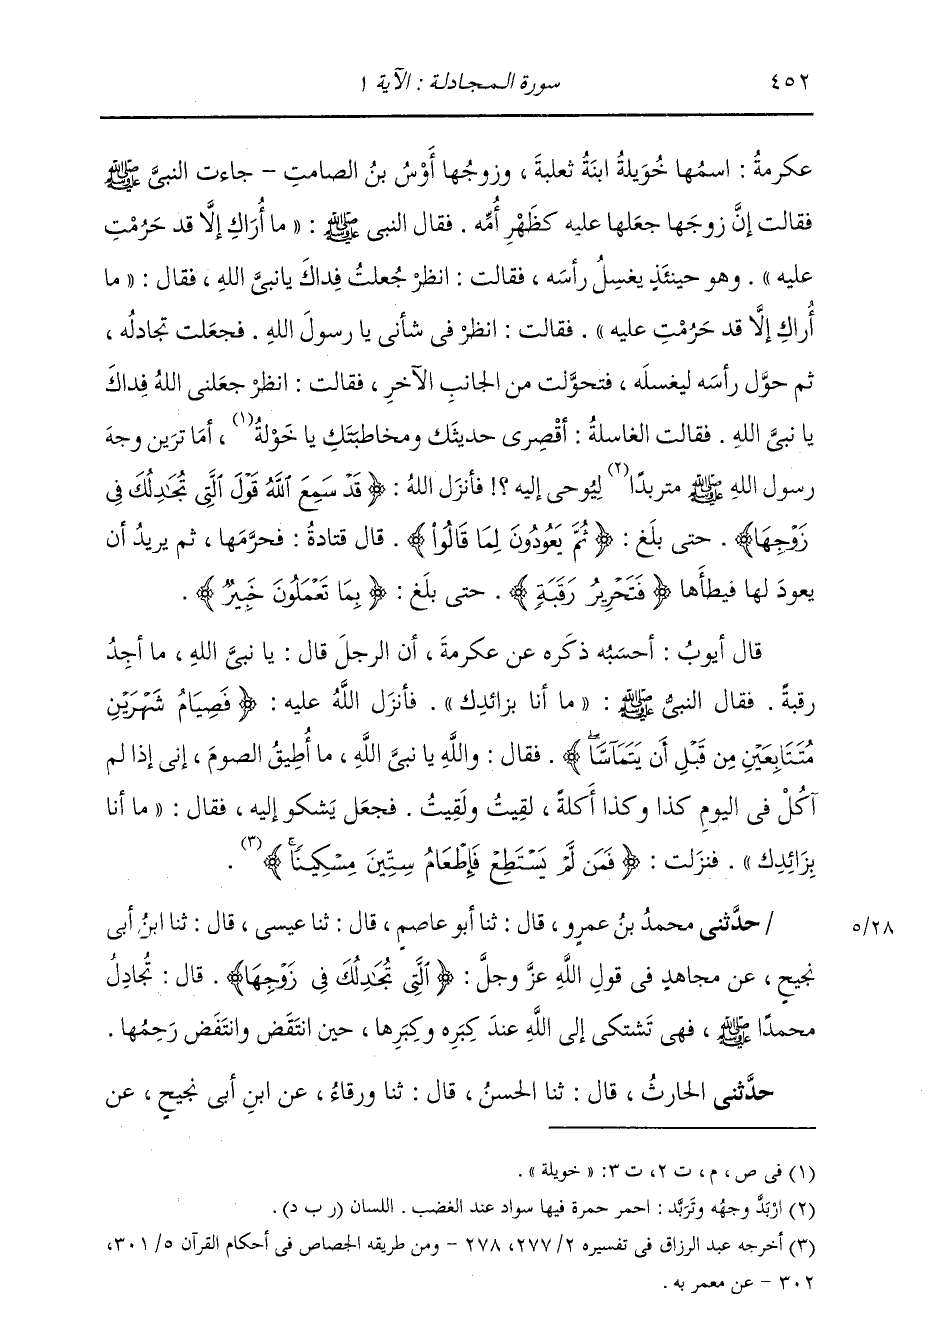 ٤٥٢ سورة المجادلة : الآية ١
عكرمةُ : اسمُها خُوَيلةُ ابنَةُ ثعلبةَ ، وزوجُها أَوْسُ بنُ الصامتِ – جاءت النبىَّ ﷺ
فقالت إنَّ زوجَها جعَلها عليه كظَهْرِ أُمِّه . فقال النبى ﷺ : « ما أُرَاكِ إلَّا قد حَرُمْتِ
عليه » . وهو حينئذٍ يغسِلُ رأسَه ، فقالت : انظرْ جُعلتُ فِداكَ يانبىَّ اللهِ ، فقال : « ما
أُراكِ إلَّا قد حَرُمْتِ عليه » . فقالت : انظرْ فى شأنى يا رسولَ اللهِ . فجعَلت تجادلُه ،
ثم حوَّل رأسَه ليغسلَه ، فتحوَّلت من الجانبِ الآخرِ ، فقالت : انظرْ جعَلنى اللهُ فِداكَ
يا نبىَّ اللهِ . فقالت الغاسلةُ : أقْصِرى حديثَك ومخاطبَتَكِ يا خَوْلةُ(١) ، أمَا ترَين وجهَ
رسول اللهِ ﷺ متربدًا(٢) لِيُوحى إليه ؟! فأنزَل اللهُ : ﴿ قَدْ سَمِعَ ٱللَّهُ قَوْلَ ٱلَّتِى تُجَـٰدِلُكَ فِى
زَوْجِهَا﴾ . حتى بلَغ : ﴿ ثُمَّ يَعُودُونَ لِمَا قَالُوا۟ ﴾ . قال قتادةُ : فحرَّمَها ، ثم يريدُ أن
يعودَ لها فيطأَها ﴿ فَتَحْرِيرُ رَقَبَةٍ ﴾ . حتى بلَغ : ﴿ بِمَا تَعْمَلُونَ خَبِيرٌ ﴾ .
قال أيوبُ : أحسَبُه ذكَره عن عكرمةَ ، أن الرجلَ قال : يا نبىَّ اللهِ ، ما أجِدُ
رقبةً . فقال النبىُّ ﷺ : « ما أنا بزائدِك » . فأنزَل اللَّهُ عليه : ﴿ فَصِيَامُ شَهْرَيْنِ
مُتَتَابِعَيْنِ مِن قَبْلِ أَن يَتَمَآسَّاۖ ﴾ . فقال : واللَّهِ يا نبىَّ اللَّهِ ، ما أُطِيقُ الصومَ ، إنى إذا لم
آكُلْ فى اليومِ كذا وكذا أَكلةً ، لقِيتُ ولَقِيتُ . فجعَل يَشكو إليه ، فقال : « ما أنا
بزَائِدِك » . فنزَلت : ﴿ فَمَن لَّمْ يَسْتَطِعْ فَإِطْعَامُ سِتِّينَ مِسْكِينًاۚ ﴾(٣) .
٥/٢٨ / حدَّثنى محمدُ بنُ عمرٍو ، قال : ثنا أبو عاصمٍ ، قال : ثنا عيسى ، قال : ثنا ابنُ أبى
نجيحٍ ، عن مجاهدٍ فى قولِ اللَّهِ عزَّ وجلَّ : ﴿ ٱلَّتِى تُجَـٰدِلُكَ فِى زَوْجِهَا﴾ . قال : تُجادِلُ
محمدًا ﷺ ، فهى تَشتكى إلى اللَّهِ عندَ كِبَرِه وكِبَرِها ، حين انتَفَض وانتَفَض رَحِمُها .
حدَّثنى الحارثُ ، قال : ثنا الحسنُ ، قال : ثنا ورقاءُ ، عن ابنِ أبى نجيحٍ ، عن
(١) فى ص ، م ، ت ٢، ت ٣: « خويلة » .
(٢) ارْبَدَّ وجهُه وتَرَبَّد : احمر حمرة فيها سواد عند الغضب . اللسان (ر ب د) .
(٣) أخرجه عبد الرزاق فى تفسيره ٢/ ٢٧٧، ٢٧٨ – ومن طريقه الجصاص فى أحكام القرآن ٥/ ٣٠١،
٣٠٢ – عن معمر به .